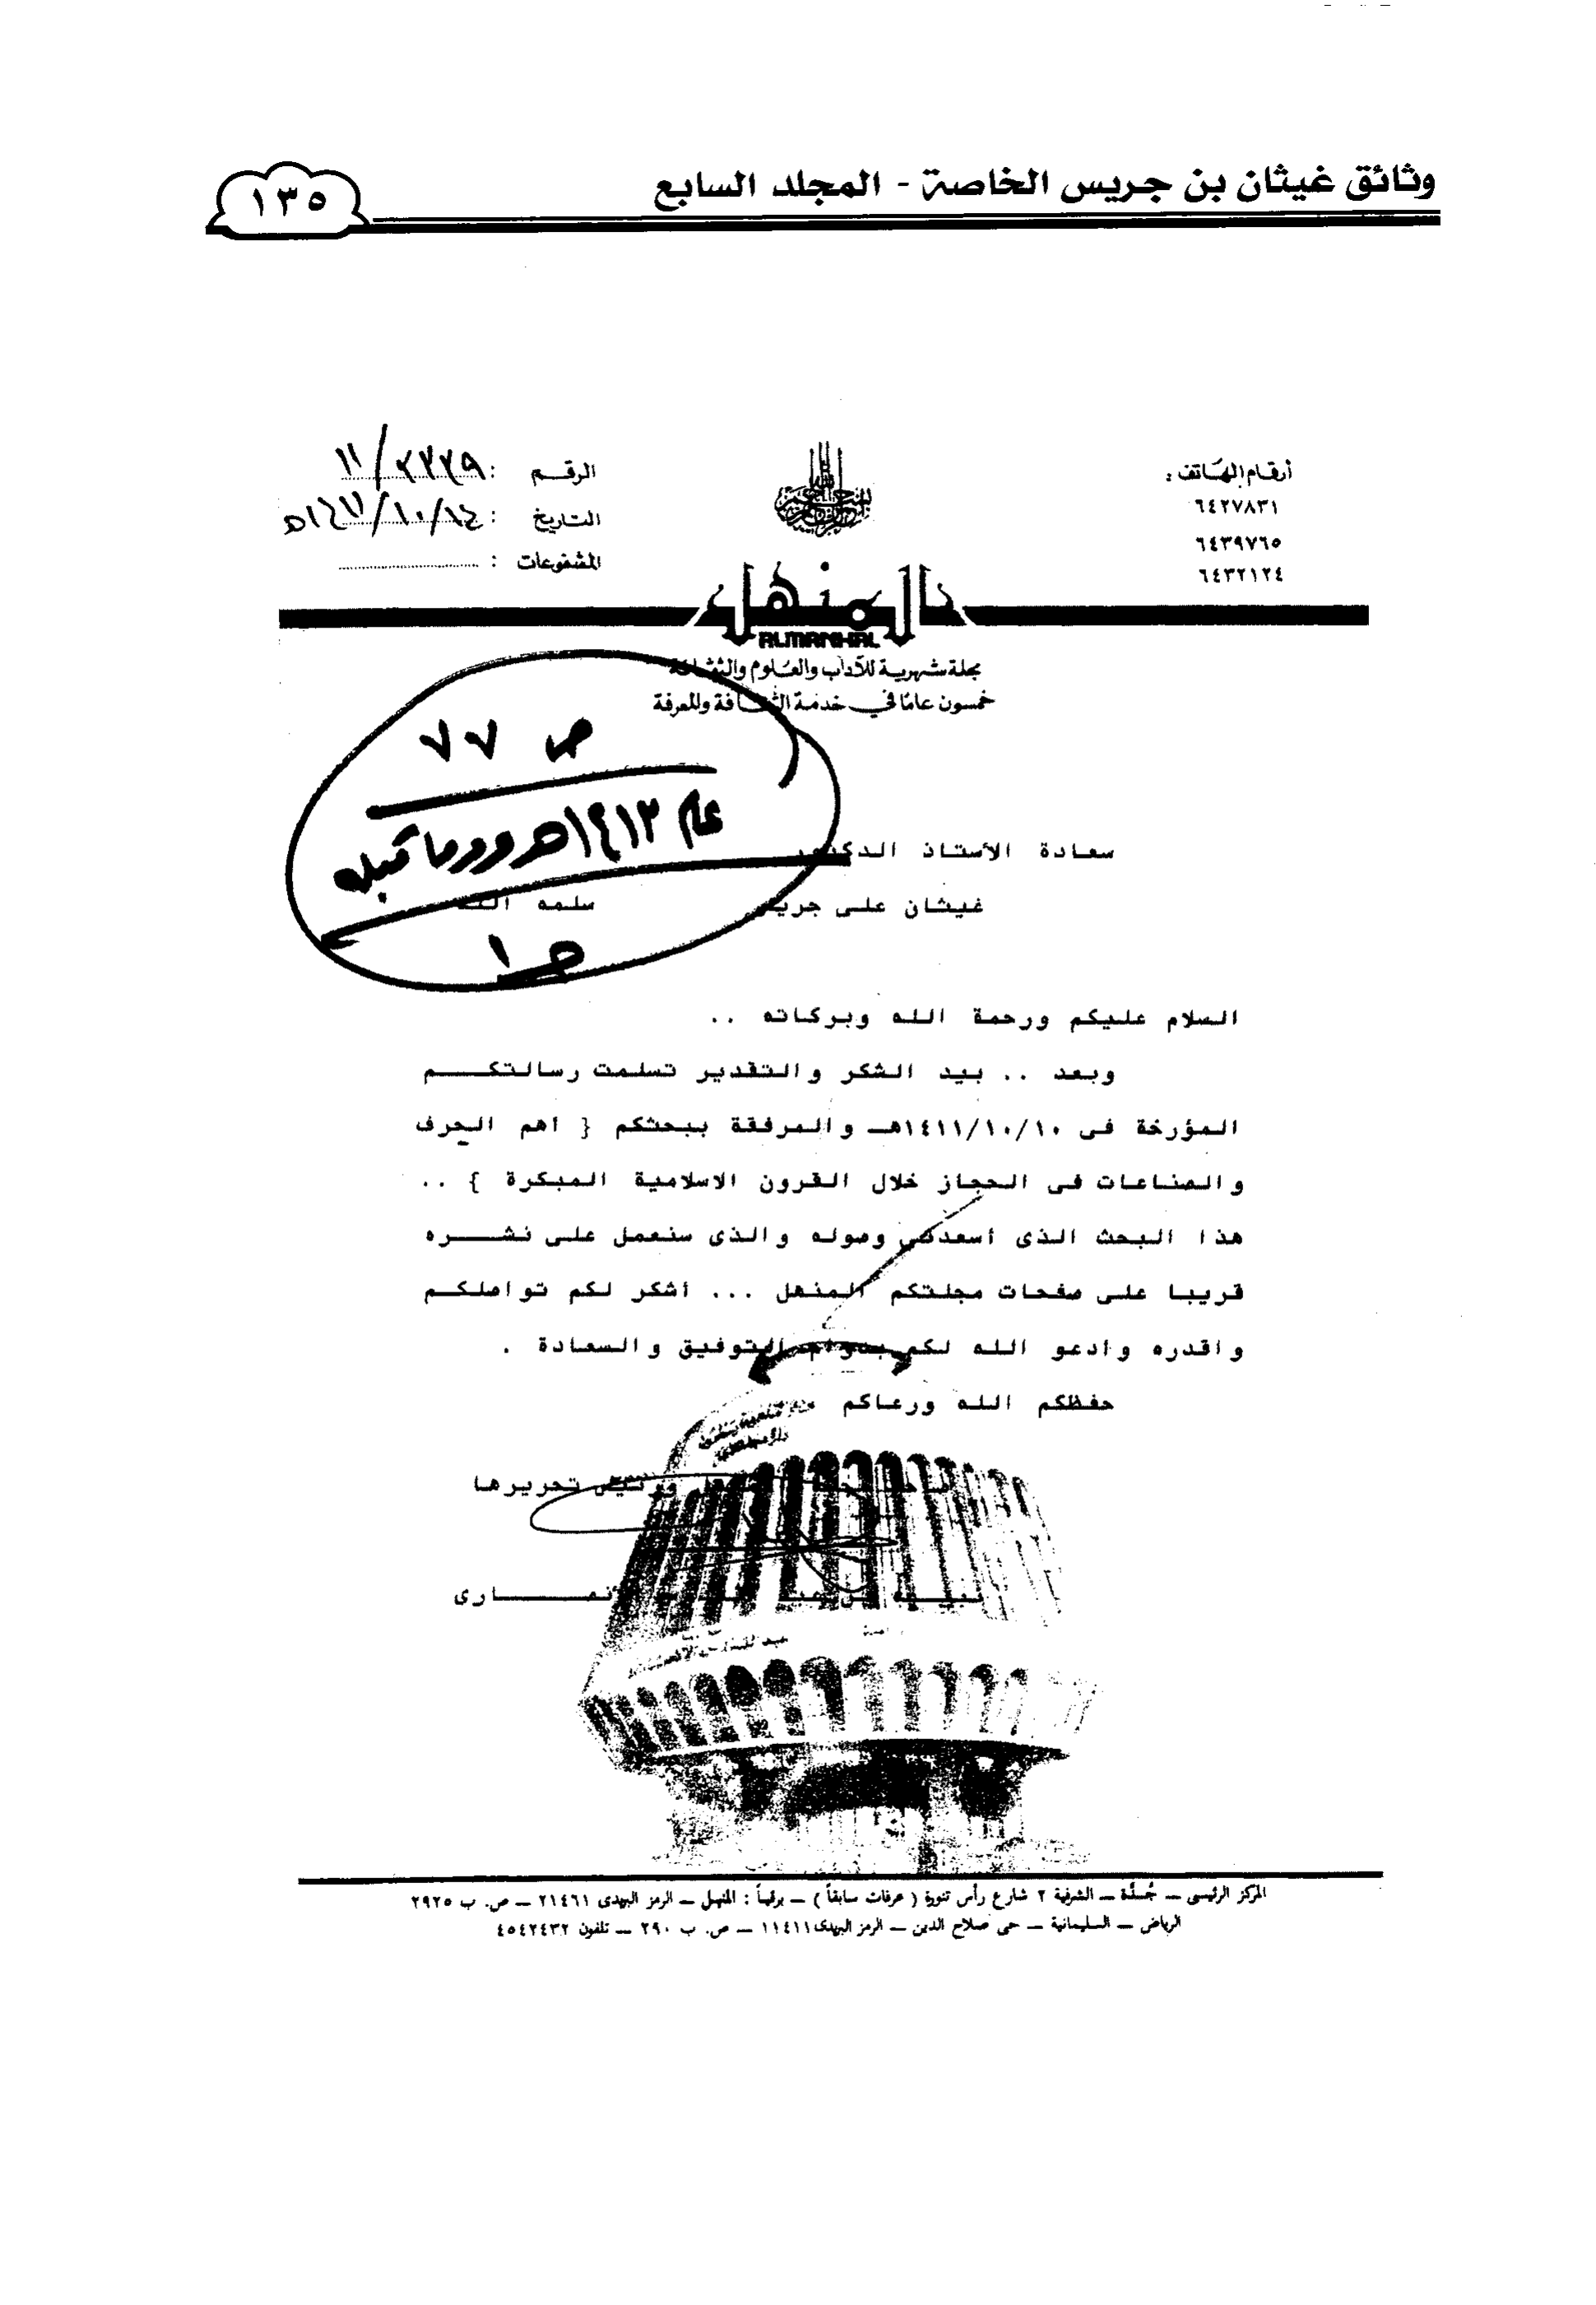 وثائق غيثان بن جريس الخاصة - المجلد السابع
١٣٥
أرقام الهاتف :
٦٤٢٧٨٣١
٦٤٣٩٧٦٥
٦٤٣٢١٢٤
الرقم :
التاريخ : ١٤١١/١٠/١٤هـ
المشفوعات :
المنهل
ALMANHAL
مجلة شهرية للآداب والعلوم والثقافة
خمسون عامًا في خدمة الثقافة والمعرفة
ص ٧٧
عام ١٤١٣هـ وما قبله
جـ ١
سعادة الأستاذ الدكتور
غيثان على جريس سلمه الله
السلام عليكم ورحمة الله وبركاته ..
وبعد .. بيد الشكر والتقدير تسلمت رسالتكم
المؤرخة فى ١٤١١/١٠/١٠هـ والمرفقة ببحثكم { أهم الحرف
والصناعات فى الحجاز خلال القرون الاسلامية المبكرة } ..
هذا البحث الذى أسعدنى وصوله والذى سنعمل على نشره
قريبا على صفحات مجلتكم المنهل ... أشكر لكم تواصلكم
واقدره وأدعو الله لكم بدوام التوفيق والسعادة .
حفظكم الله ورعاكم
ورئيس تحريرها
الأنصارى
المركز الرئيسى – جُدَّة – الشرفية ٢ شارع رأس تنورة ( عرفات سابقاً ) – برقياً : المنهل – الرمز البريدى ٢١٤٦١ – ص. ب ٢٩٢٥
الرياض – السليمانية – حى صلاح الدين – الرمز البريدى ١١٤١١ – ص. ب ٢٩٠ – تلفون ٤٥٤٢٤٣٢